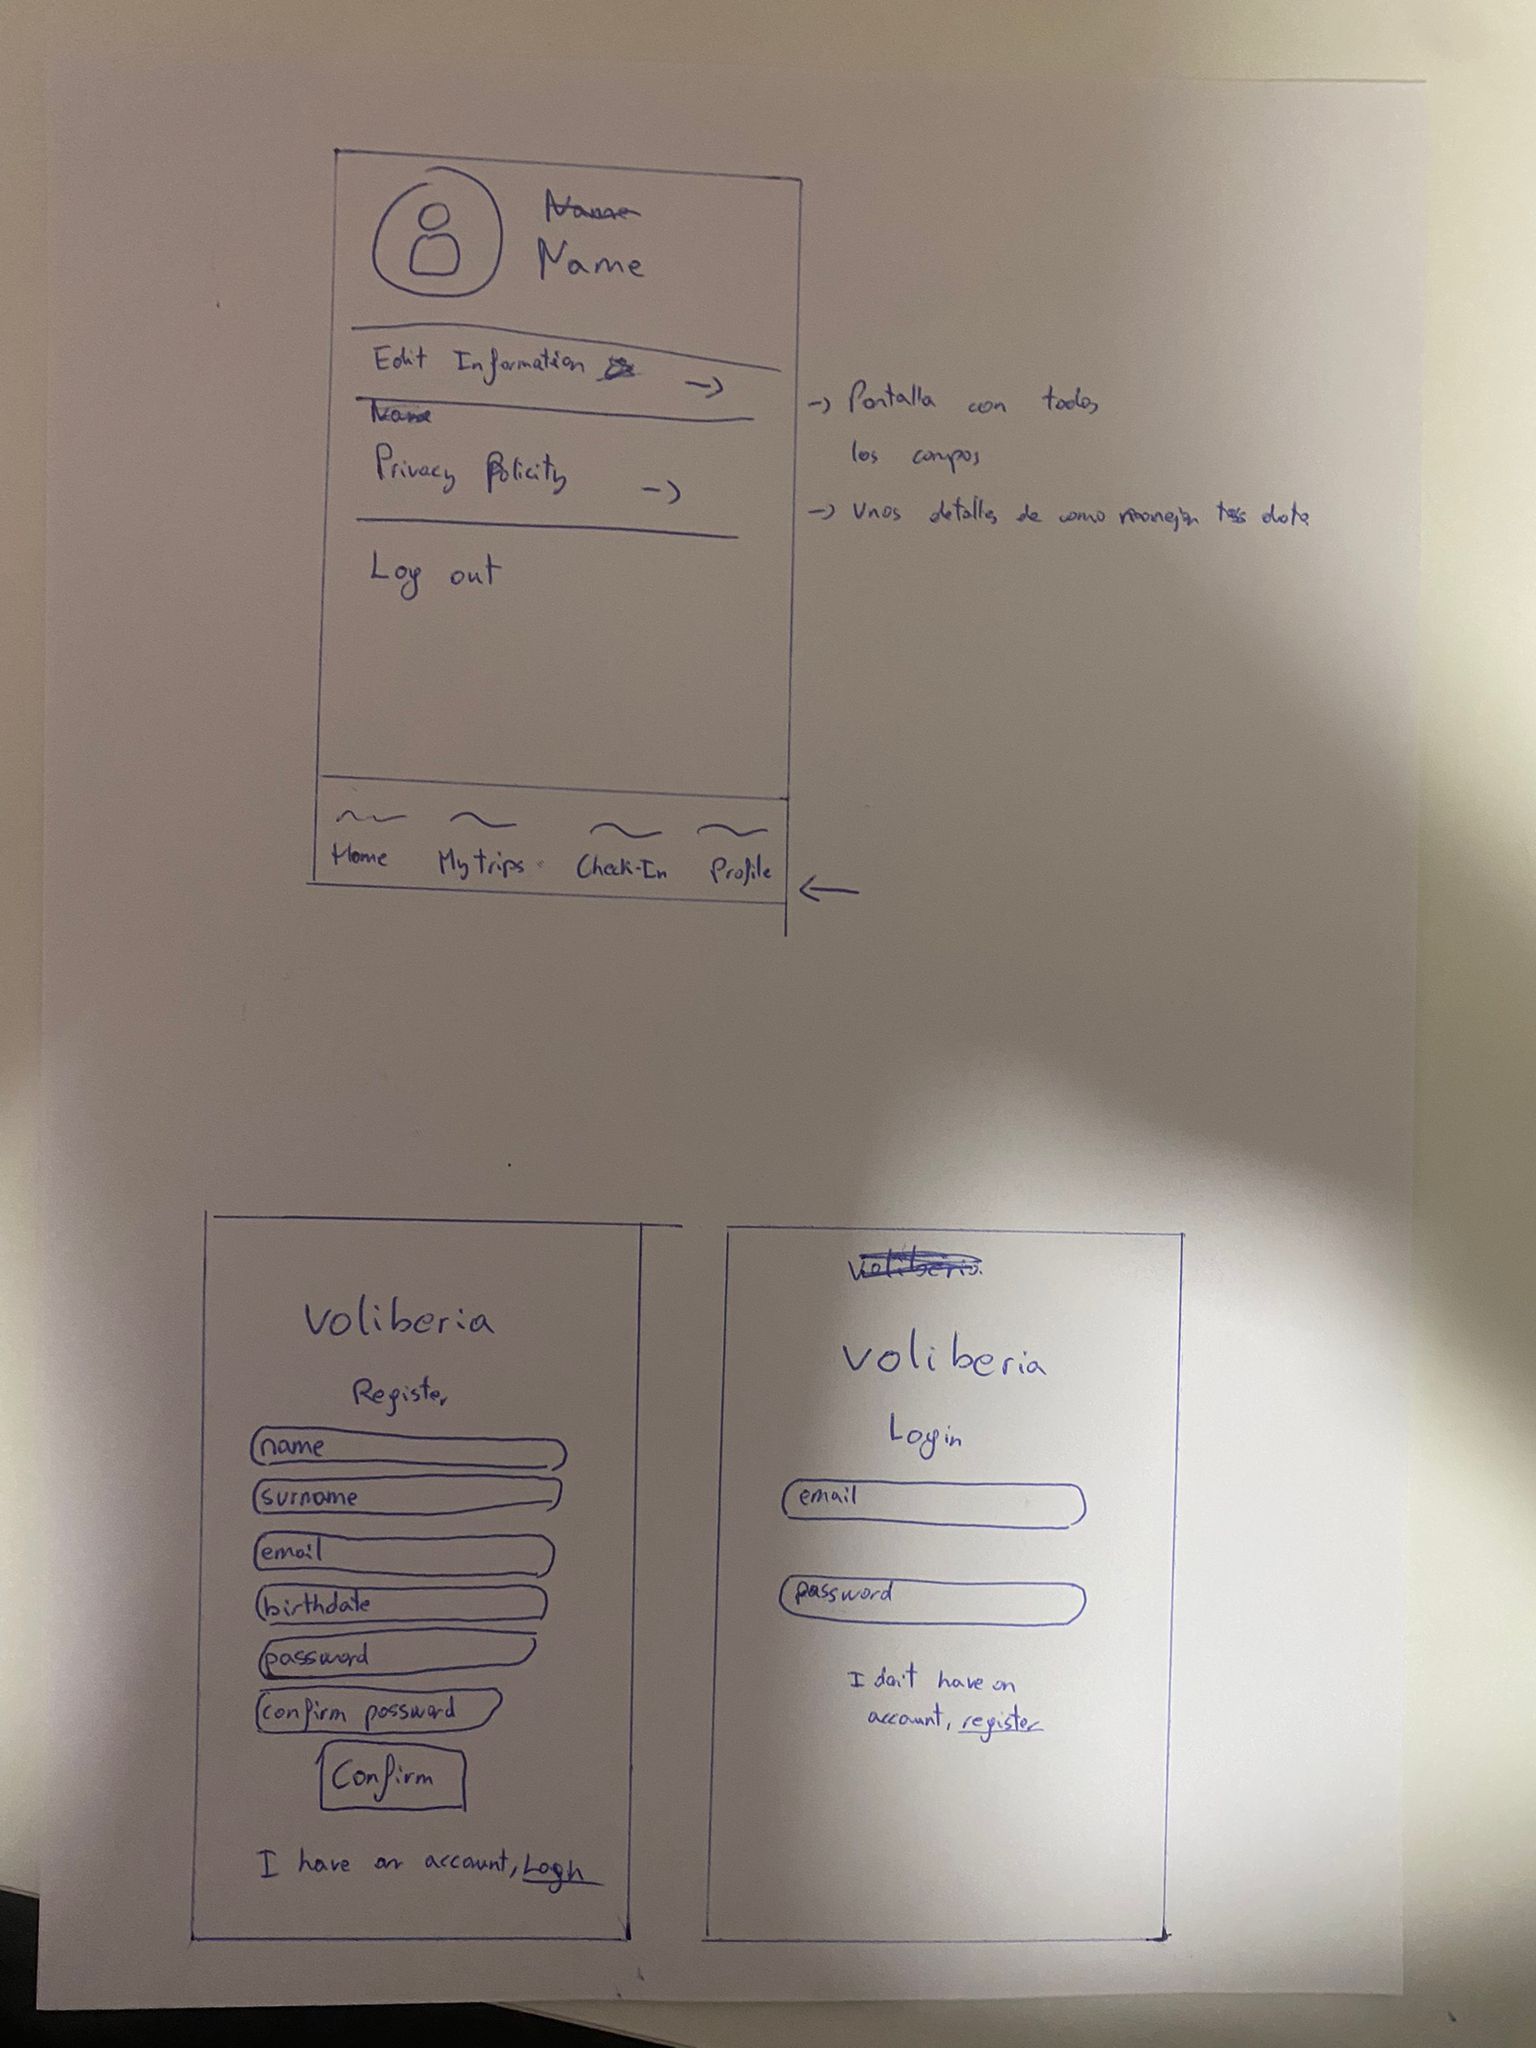 Name
Name
Edit Information →
Name
Privacy Policity →
Log out
→ Pantalla con todos
los campos
→ Unos detalles de como manejan tus data
Home My trips Check-In Profile
←
Voliberia
Register
name
surname
email
birthdate
password
confirm password
Confirm
I have an account, Login
Voliberia
Voliberia
Login
email
password
I don't have an
account, register